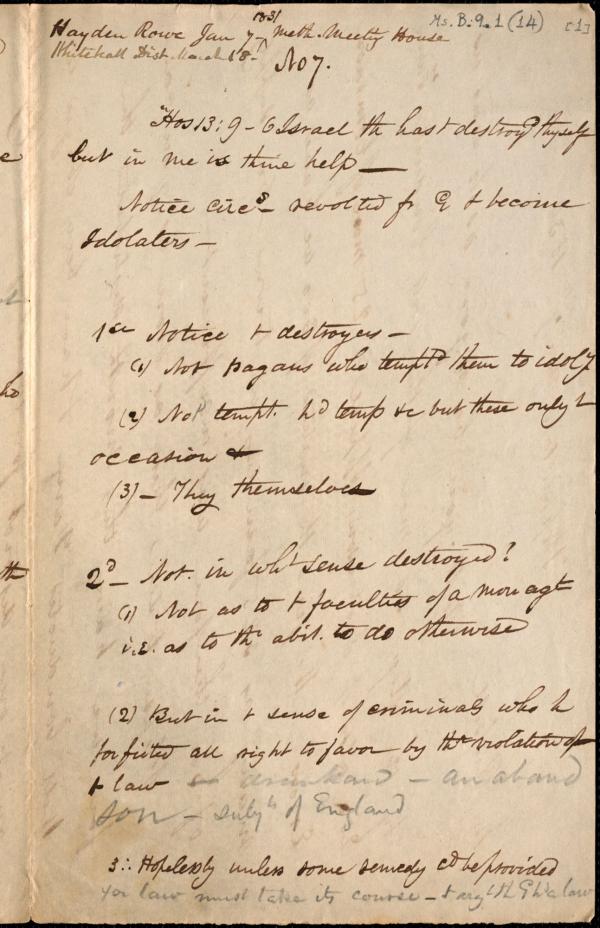 Ms. B. 9.1 (14) [1]
1831
Hayden Rowe Jan 7 - Meth. Meetg House
Whitehall Dist. March 18 -
No 7.
"Hos 13: 9 - O Israel th hast destroyd thyself
but in me is thine help —
Notice circs - revolted fr G & become
Idolaters —
1st Notice t destroyers —
(1) Not pagans who temptd them to idoly
(2) Not tempt. hd temp &c but these only t
occasion
(3) - They themselves
2d - Not. in wht sense destroyed?
(1) Not as to t faculties of a mor agt
i.e. as to thr abil. to do otherwise
(2) But in t sense of criminals who h
forfeited all right to favor by thr violation of
t law drunkard - an aband
son - subjts of England
3: Hopelessly unless some remedy cd be provided
for law must take its course -